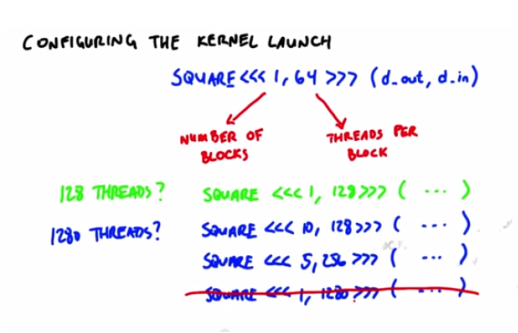 CONFIGURING THE KERNEL LAUNCH
SQUARE <<< 1, 64 >>> (d_out, d_in)
NUMBER OF BLOCKS
THREADS PER BLOCK
128 THREADS? SQUARE <<< 1, 128 >>> ( ... )
1280 THREADS? SQUARE <<< 10, 128 >>> ( ... )
SQUARE <<< 5, 256 >>> ( ... )
SQUARE <<< 1, 1280 >>> ( ... )